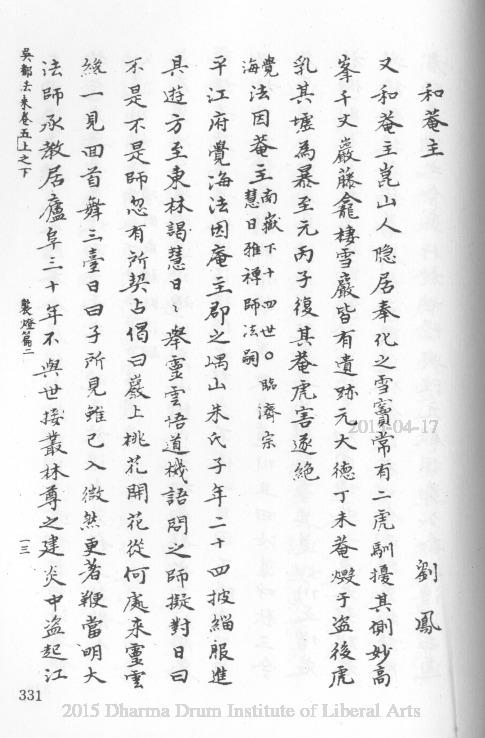 和菴主
劉鳳
又和菴主崑山人隱居奉化之雪竇常有二虎馴擾其側妙高
峯千丈巖藤龕棲雪巖皆有遺跡元大德丁未菴燬于盜後虎
乳其墟為暴至元丙子復其菴虎害遂絕
覺海法因菴主南嶽下十四世○臨濟宗
慧日雅禪師法嗣
平江府覺海法因庵主郡之嵎山朱氏子年二十四披緇服進
具遊方至東林謁慧日〻舉靈雲悟道機語問之師擬對日曰
不是不是師忽有所契占偈曰巖上桃花開花從何處來靈雲
纔一見回首舞三臺日曰子所見雖已入微然更著鞭當明大
法師承教居廬阜三十年不與世接叢林尊之建炎中盜起江
吳都法乘卷五上之下
襲燈篇二
一三
331
2015-04-17
2015 Dharma Drum Institute of Liberal Arts